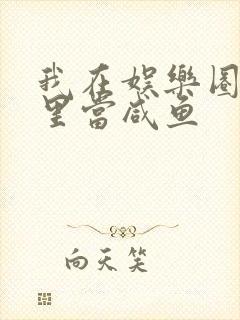 我在娱樂圈
里當咸鱼
向天笑